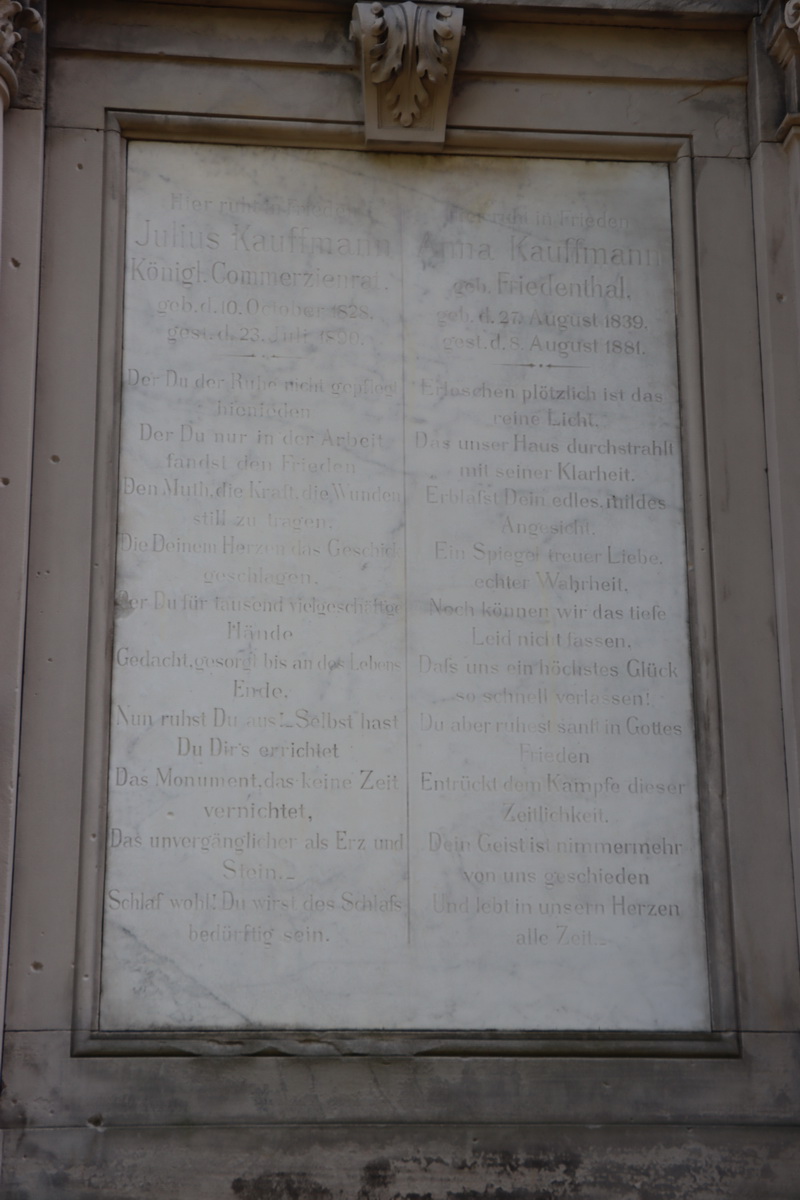 Hier ruht in Frieden
Julius Kauffmann
Königl. Commerzienrat.
geb. d. 10. October 1828.
gest. d. 23. Juli 1890.
Der Du der Ruhe nicht gepflegt
hienieden
Der Du nur in der Arbeit
fandst den Frieden
Den Muth, die Kraft, die Wunden
still zu tragen,
Die Deinem Herzen das Geschick
geschlagen.
Der Du für tausend vielgeschäftge
Hände
Gedacht, gesorgt bis an des Lebens
Ende,
Nun ruhst Du aus!_ Selbst hast
Du Dir's errichtet
Das Monument, das keine Zeit
vernichtet,
Das unvergänglicher als Erz und
Stein._
Schlaf wohl! Du wirst des Schlafs
bedürftig sein.
Hier ruht in Frieden
Anna Kauffmann
geb. Friedenthal,
geb. d. 27. August 1839.
gest. d. 8. August 1881.
Erloschen plötzlich ist das
reine Licht,
Das unser Haus durchstrahlt
mit seiner Klarheit.
Erblafst Dein edles, mildes
Angesicht,
Ein Spiegel treuer Liebe,
echter Wahrheit.
Noch können wir das tiefe
Leid nicht fassen,
Dafs uns ein höchstes Glück
so schnell verlassen!
Du aber ruhest sanft in Gottes
Frieden
Entrückt dem Kampfe dieser
Zeitlichkeit.
Dein Geist ist nimmermehr
von uns geschieden
Und lebt in unsern Herzen
alle Zeit._